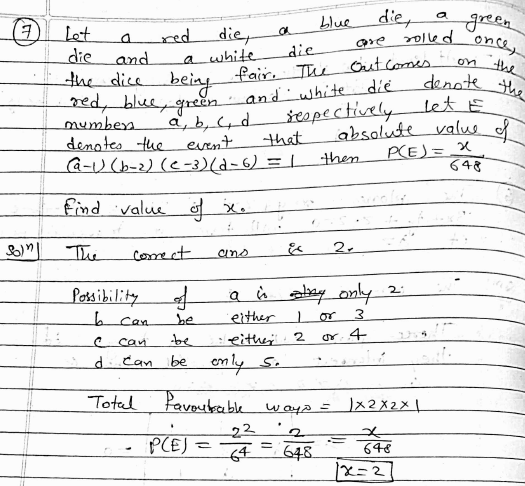 7 Let a red die, a blue die, a green
die and a white die are rolled once,
the dice being fair. The outcomes on the
red, blue, green and white die denote the
numbers a, b, c, d respectively let E
denotes the event that absolute value of
(a-1)(b-2)(c-3)(d-6) = 1 then P(E) = x/648
find value of x.
Sol^n The correct ans is 2.
Possibility of a is only 2.
b can be either 1 or 3
c can be either 2 or 4
d can be only 5.
Total favourable ways = 1x2x2x1
P(E) = 2^2/6^4 = 2/648 = x/648
x=2